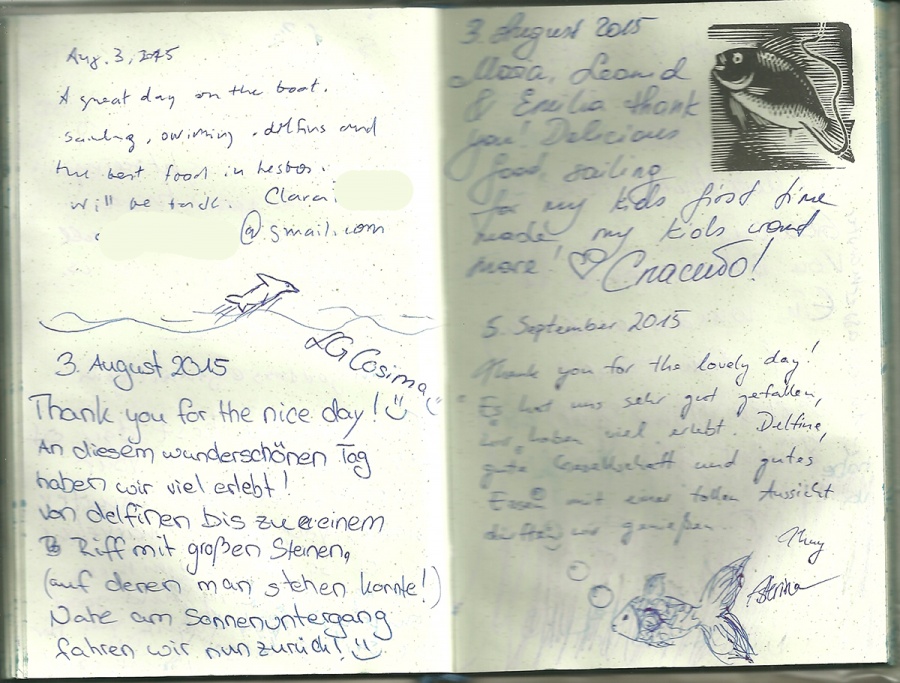 Aug. 3, 2015
A great day on the boat.
sailing, swiming, delfins and
the best food in lesbos.
will be back. Clara
@gmail.com
LG Cosima
3. August 2015
Thank you for the nice day!
An diesem wunderschönen Tag
haben wir viel erlebt!
von delfinen bis zu einem
Riff mit großen Steinen,
(auf deren man stehen konnte!)
Nahe am Sonnenuntergang
fahren wir nun zurück!
3. August 2015
Leonid
& Emilia thank
you! Delicious
food, sailing
for my kids first time
made my kids want
more! Спасибо!
5. September 2015
Thank you for the lovely day!
Es hat uns sehr gut gefallen,
wir haben viel erlebt. Delfine,
gute Gesellschaft und gutes
Essen mit einer tollen Aussicht
durften wir genießen